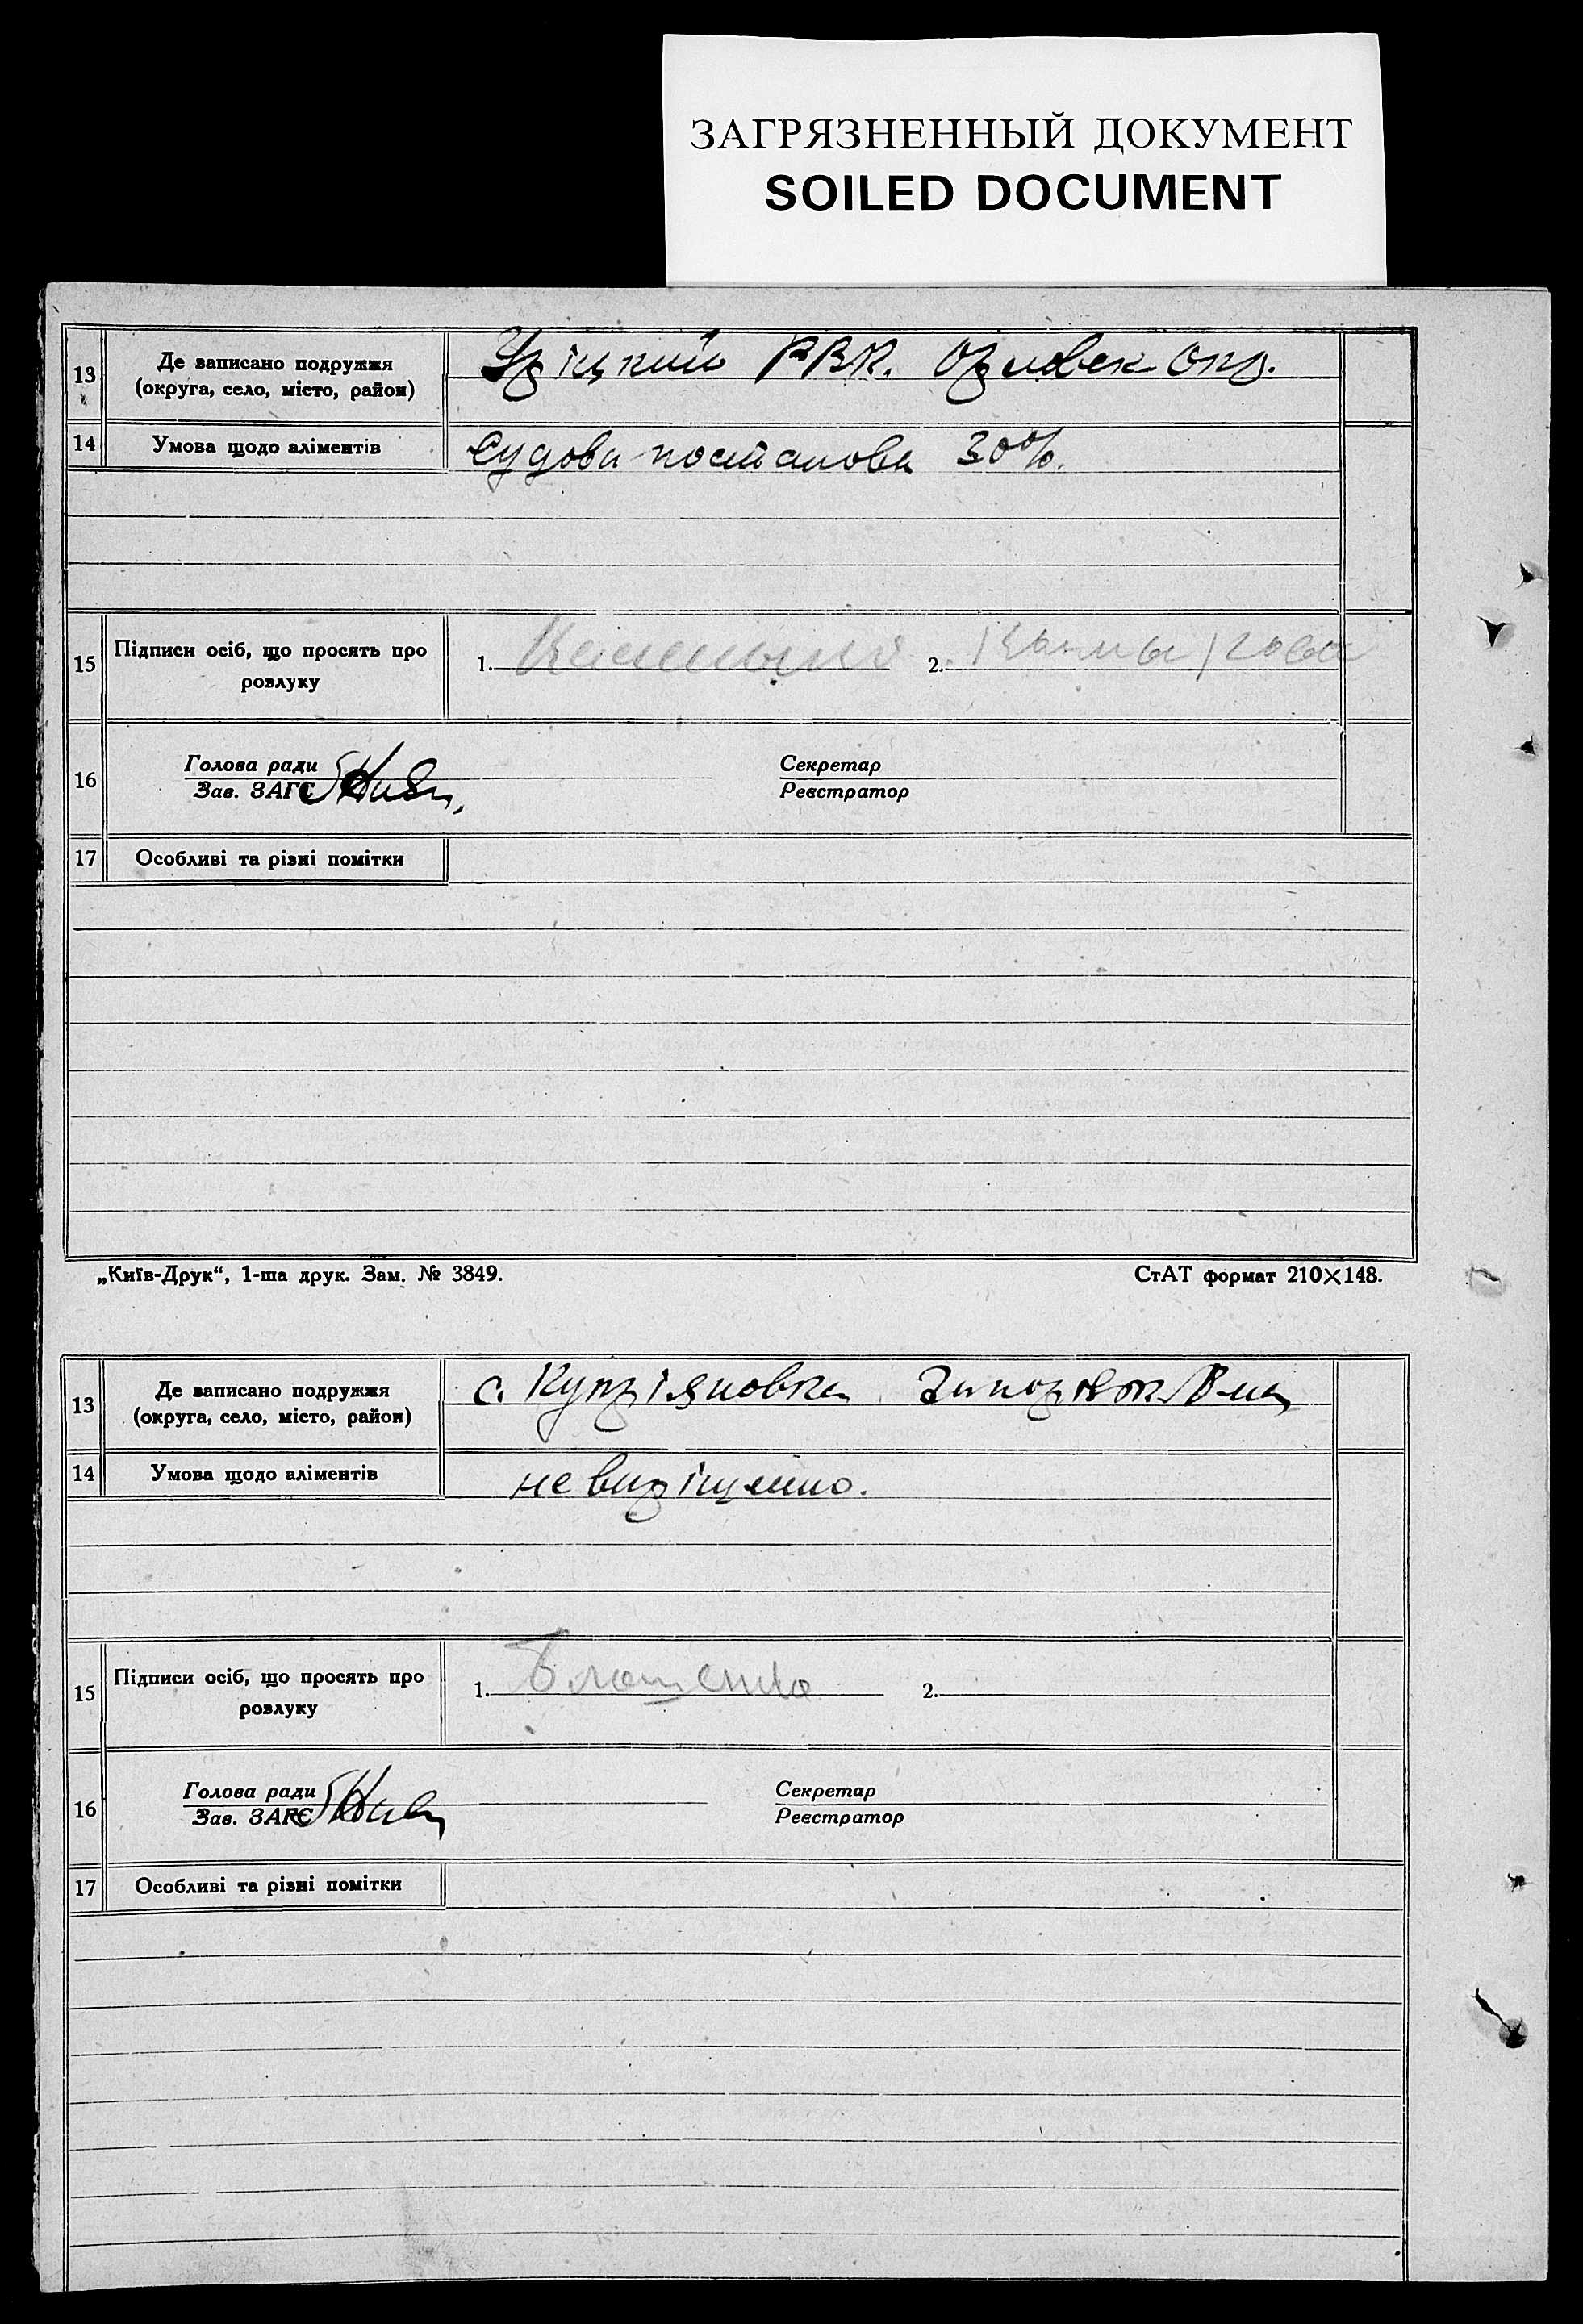 ЗАГРЯЗНЕННЫЙ ДОКУМЕНТ
SOILED DOCUMENT
13 Де записано подружжя
(округа, село, місто, район)
Уріцкий РВК. Орловск Окр.
14 Умова щодо аліментів
Судова постанова 30%.
15 Підписи осіб, що просять про
розлуку
1. 2.
16 Голова ради
Зав. ЗАГС
Секретар
Реєстратор
17 Особливі та різні помітки
„Київ-Друк“, 1-ша друк. Зам. № 3849.
СтАТ формат 210×148.
13 Де записано подружжя
(округа, село, місто, район)
с. Купріяновка Запоріж
14 Умова щодо аліментів
не виріщенно.
15 Підписи осіб, що просять про
розлуку
1. 2.
16 Голова ради
Зав. ЗАГС
Секретар
Реєстратор
17 Особливі та різні помітки